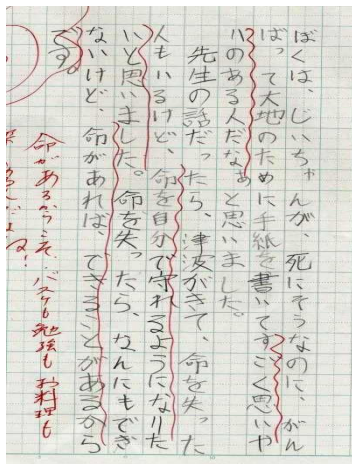 ぼくは、じいちゃんが、死にそうなのに、がん
ばって大地のために手紙を書いてすごく思いや
りのある人だなぁと思いました。
先生の話だったら、がきて、命を失った
人もいるけど、命を自分で守れるようになりた
いと思いました。命を失ったら、なんにもでき
ないけど、命があれば、できることがあるから
です。
命があるからこそ、バスケも勉強もお料理も